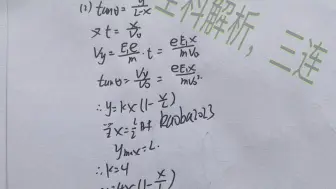 (2) tanθ = y/(L-x)
又 t = x/V₀
Vy = eE₁/m · t = eE₁x/mV₀
tanθ = Vy/V₀ = eE₁x/mV₀²
∴ y = kx(1 - x/L)
当 x = L/2 时
ymax = L
∴ k = 4
全科解析，三连